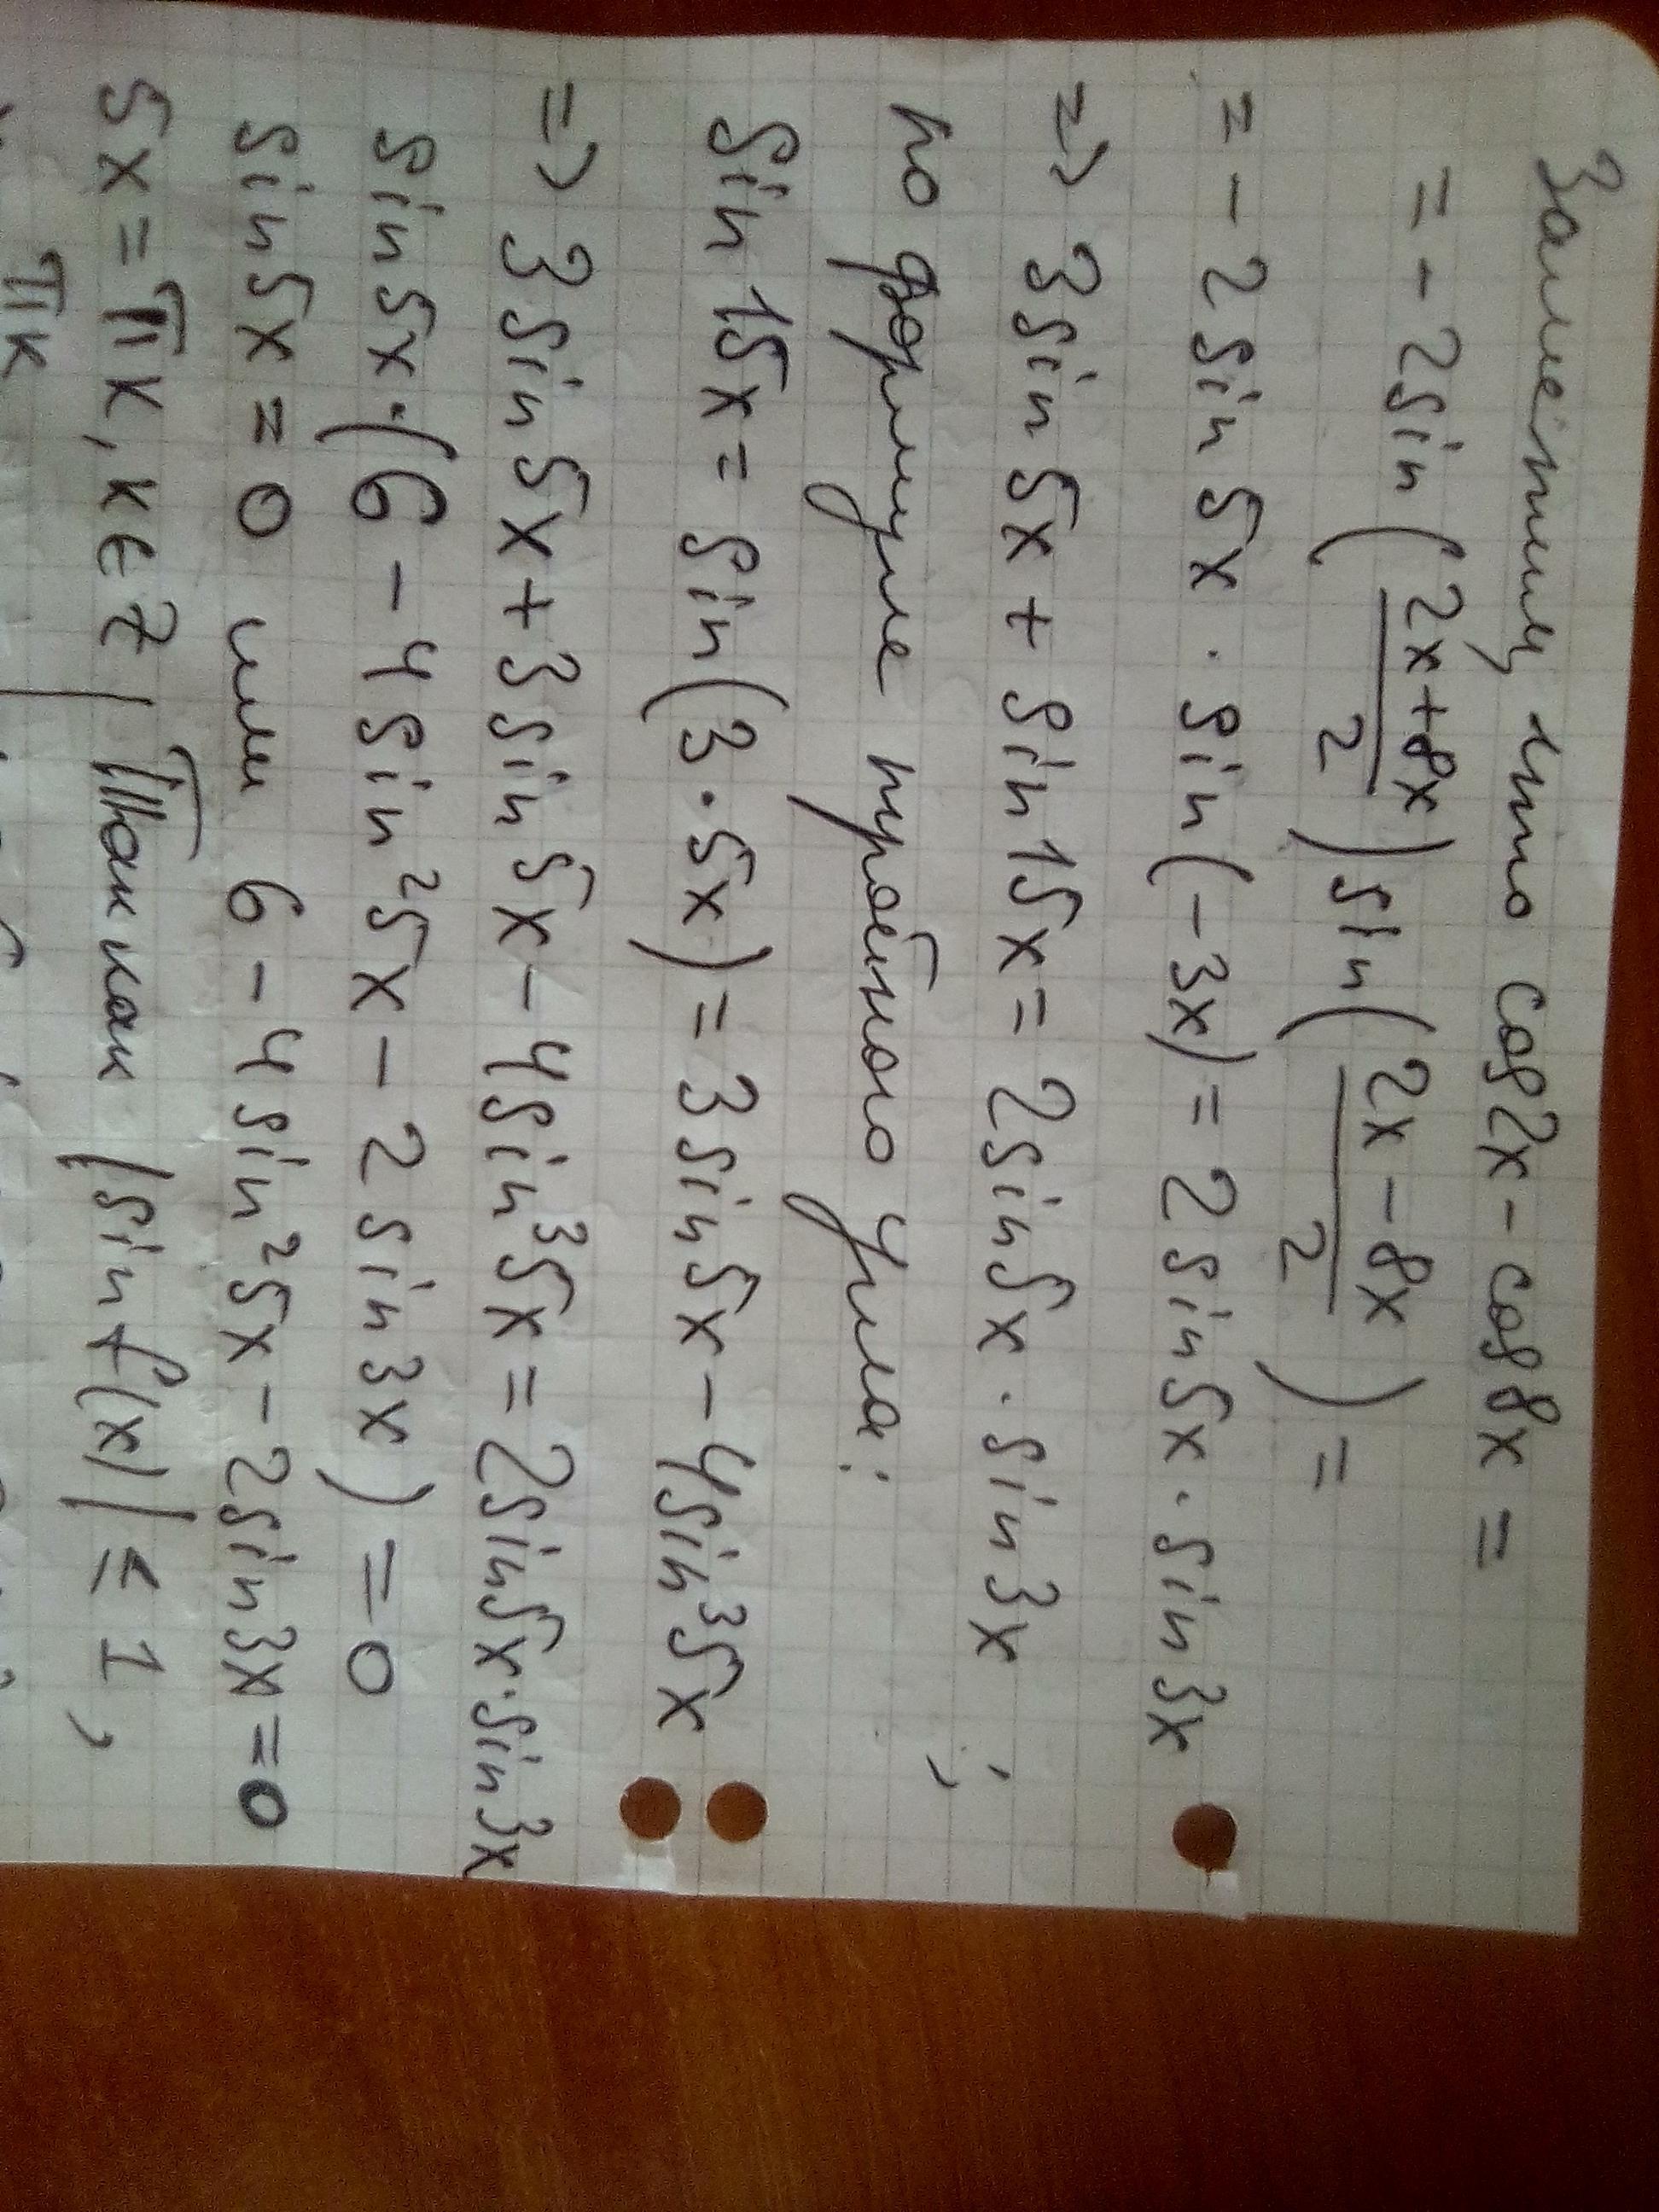 Заметим, что cos2x - cos8x =
= - 2sin(\frac{2x+8x}{2}) sin(\frac{2x-8x}{2}) =
= - 2 sin 5x · sin(-3x) = 2 sin 5x · sin 3x
=> 3 sin 5x + sin 15x = 2 sin 5x · sin 3x ;
по формуле тройного угла:
sin 15x = sin(3 · 5x) = 3 sin 5x - 4 sin³5x
=> 3 sin 5x + 3 sin 5x - 4 sin³5x = 2 sin 5x · sin 3x
sin 5x · (6 - 4 sin²5x - 2 sin 3x) = 0
sin 5x = 0 или 6 - 4 sin²5x - 2 sin 3x = 0
5x = πk, k ∈ Z | Так как |sin f(x)| ≤ 1,
πk